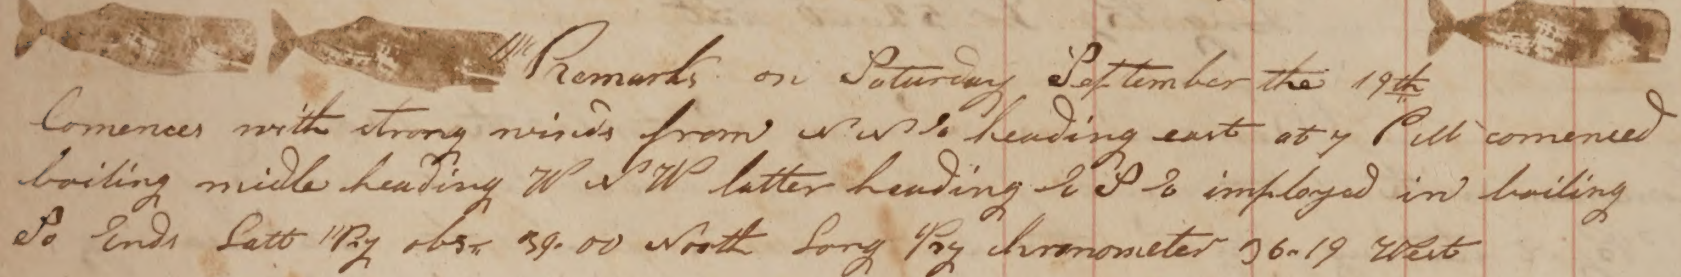 Remarks on Saturday September the 19th
Comences with strong winds from NNE heading east at 7 PM comenced
boiling midle heading WNW latter heading ESE imployed in boiling
So Ends Latt By obs 39-00 North Long By chronometer 36-19 West